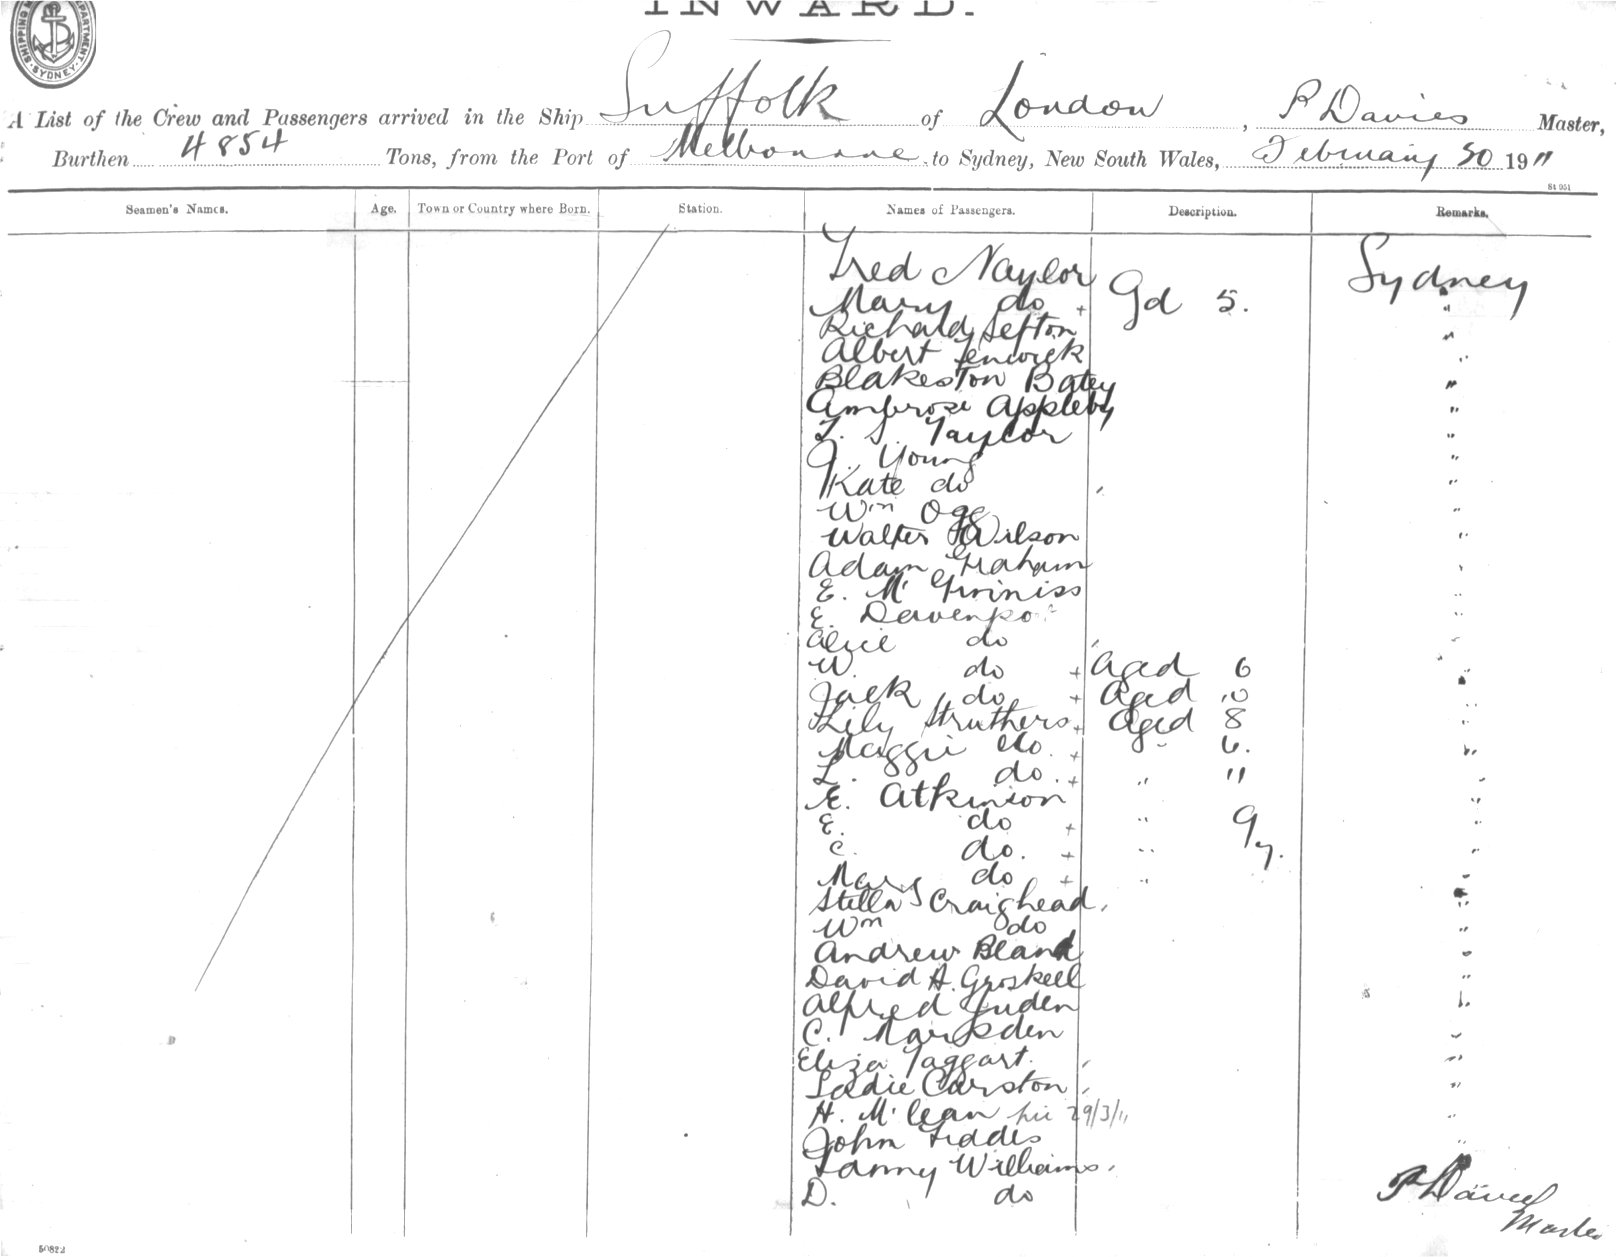 INWARD.
SHIPPING DEPARTMENT. SYDNEY.
A List of the Crew and Passengers arrived in the Ship Suffolk of London, P Davies Master,
Burthen 4854 Tons, from the Port of Melbourne to Sydney, New South Wales, February 20 1911
St 051
Seamen's Names. Age. Town or Country where Born. Station. Names of Passengers. Description. Remarks.
Fred Naylor Sydney
Mary do + gd 5. "
Richard Sefton "
Albert Fenwick "
Blakeston Batey "
Ambrose Appleby "
T. S. Taylor "
J. Young "
Kate do "
Wm Ogg "
Walter Wilson "
Adam Graham "
E. Mc Guiniss "
E. Davenport "
Alice do "
W. do + Aged 6 "
Jack do + Aged 10 "
Lily Struthers + Aged 8 "
Maggie do. + " 6. "
L. do. + " 11 "
E. Atkinson "
E. do + " 9 "
C. do. + " 7. "
Mary do + " "
Stella Craighead "
Wm do "
Andrew Bland "
David A. Groskell "
Alfred Juden "
C. Marsden "
Eliza Taggart. "
Sadie Curston "
H. Mc lean 29/3/11 "
John Fiddes "
Fanny Williams.
D. do
P Davies
Master
50822